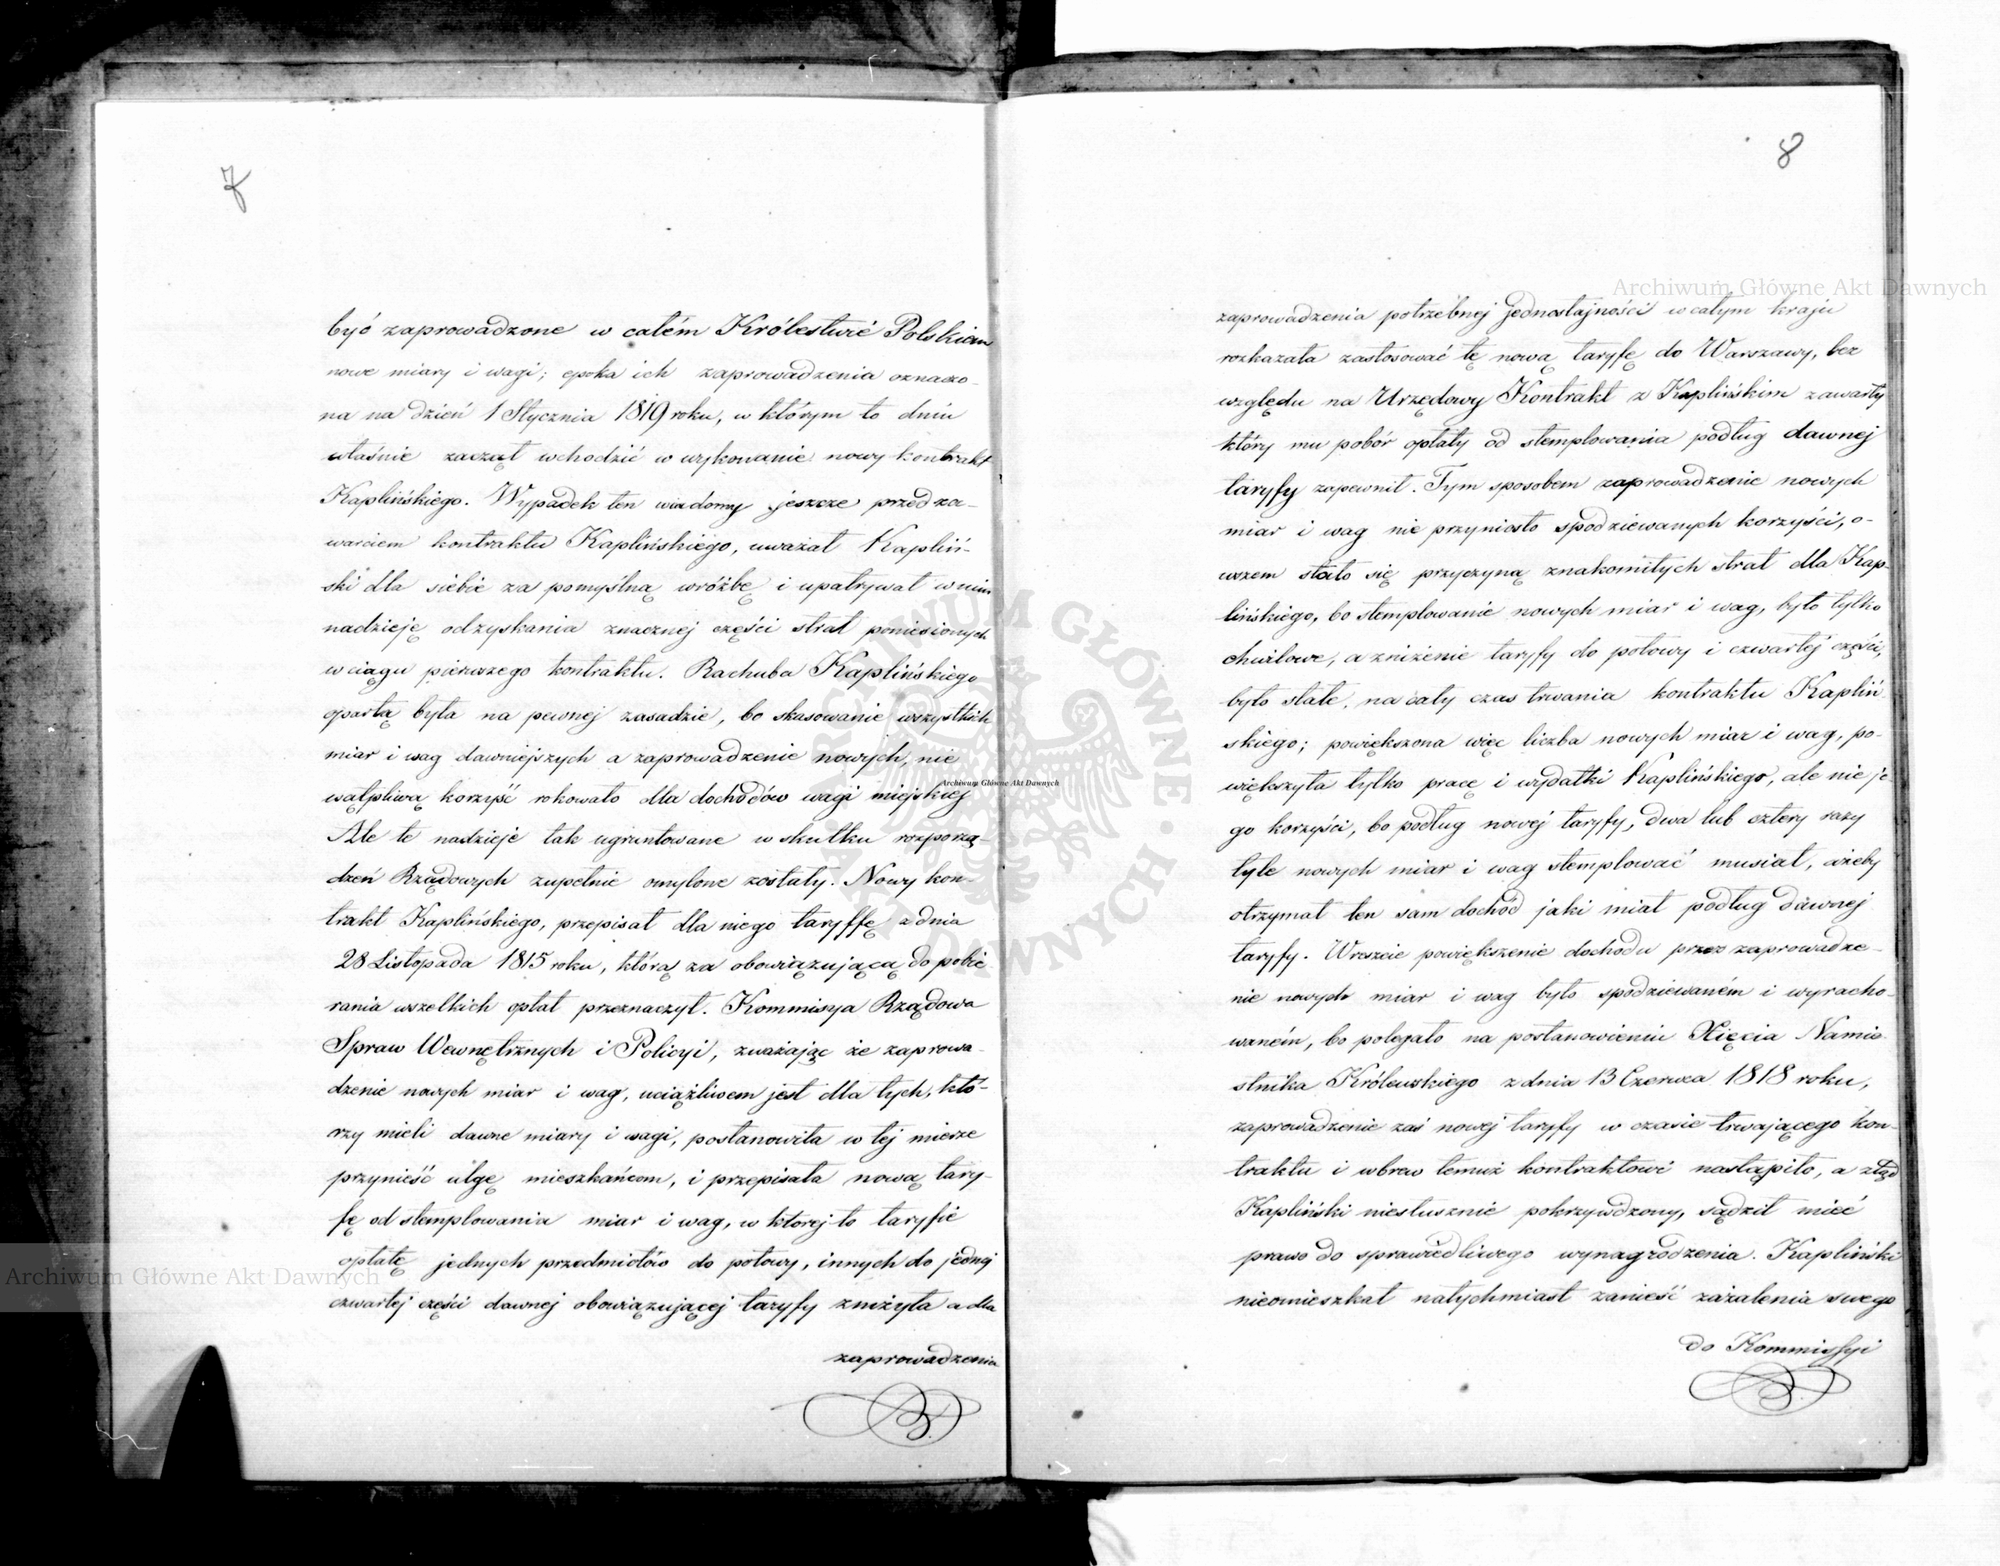 7
być zaprowadzone w całém Królestwie Polskiem
nowe miary i wagi; epoka ich zaprowadzenia oznaczo-
na na dzień 1 Stycznia 1819 roku, w którym to dniu
właśnie zaczął wchodzić w wykonanie nowy kontrakt
Kaplińskiego. Wypadek ten wiadomy jeszcze przed za-
warciem kontraktu Kaplińskiego, uważał Kapliń-
ski dla siebie za pomyślną wróżbę i upatrywał w nim
nadzieję odzyskania znacznej części strat poniesionych
w ciągu pierwszego kontraktu. Rachuba Kaplińskiego
opartą była na pewnej zasadzie, bo skasowanie wszystkich
miar i wag dawniejszych a zaprowadzenie nowych, nie
wątpliwą korzyść rokowało dla dochodów wagi miejskiej
Ale te nadzieje tak ugruntowane w skutku rozporzą-
dzeń Rządowych zupełnie omylone zostały. Nowy kon-
trakt Kaplińskiego, przepisał dla niego taryffę z dnia
28 Listopada 1815 roku, którą za obowiązującą do pobie
rania wszelkich opłat przeznaczył. Kommissya Rządowa
Spraw Wewnętrznych i Policyi, zważając że zaprowa-
dzenie nowych miar i wag, uciążliwem jest dla tych, któ-
rzy mieli dawne miary i wagi, postanowiła w tej mierze
przynieść ulgę mieszkańcom, i przepisała nową tary-
fę od stemplowania miar i wag, w ktorej to taryfie
opłatę jednych przedmiotów do połowy, innych do jednej
czwartej części dawnej obowiązującej taryfy zniżyła a dla
zaprowadzenia
8
zaprowadzenia potrzebnej jednostajności w całym kraju
rozkazała zastosować tę nową taryfę do Warszawy, bez
względu na Urzędowy Kontrakt z Kaplińskim zawarty
który mu pobór opłaty od stemplowania podług dawnej
taryfy zapewnił. Tym sposobem zaprowadzenie nowych
miar i wag nie przyniosło spodziewanych korzyści, o-
wszem stało się przyczyną znakomitych strat dla Kap-
lińskiego, bo stemplowanie nowych miar i wag, było tylko
chwilowe, a zniżenie taryfy do połowy i czwartej części,
było stałe, na cały czas trwania kontraktu Kapliń
skiego; powiększona więc liczba nowych miar i wag, po-
większyła tylko pracę i wydatki Kaplińskiego, ale nie je
go korzyści, bo podług nowej taryfy, dwa lub cztery razy
tyle nowych miar i wag stemplować musiał, ażeby
otrzymał ten sam dochód jaki miał podług dawnej
taryfy. Wreszcie powiększenie dochodu przez zaprowadze-
nie nowych miar i wag było spodziewaném i wyracho-
waném, bo polegało na postanowieniu Xięcia Namie
stnika Królewskiego z dnia 13 Czerwca 1818 roku,
zaprowadzenie zaś nowej taryfy w czasie trwającego kon-
traktu i wbrew temuż kontraktowi nastąpiło, a ztąd
Kapliński niesłusznie pokrzywdzony, sądził mieć
prawo do sprawiedliwego wynagrodzenia. Kapliński
nieomieszkał natychmiast zanieść zażalenia swego
do Kommissyi
Archiwum Główne Akt Dawnych
Archiwum Główne Akt Dawnych
Archiwum Główne Akt Dawnych
ARCHIWUM GŁÓWNE AKT DAWNYCH